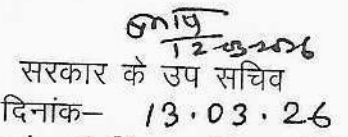 12-03-2026
सरकार के उप सचिव
दिनांक– 13.03.26